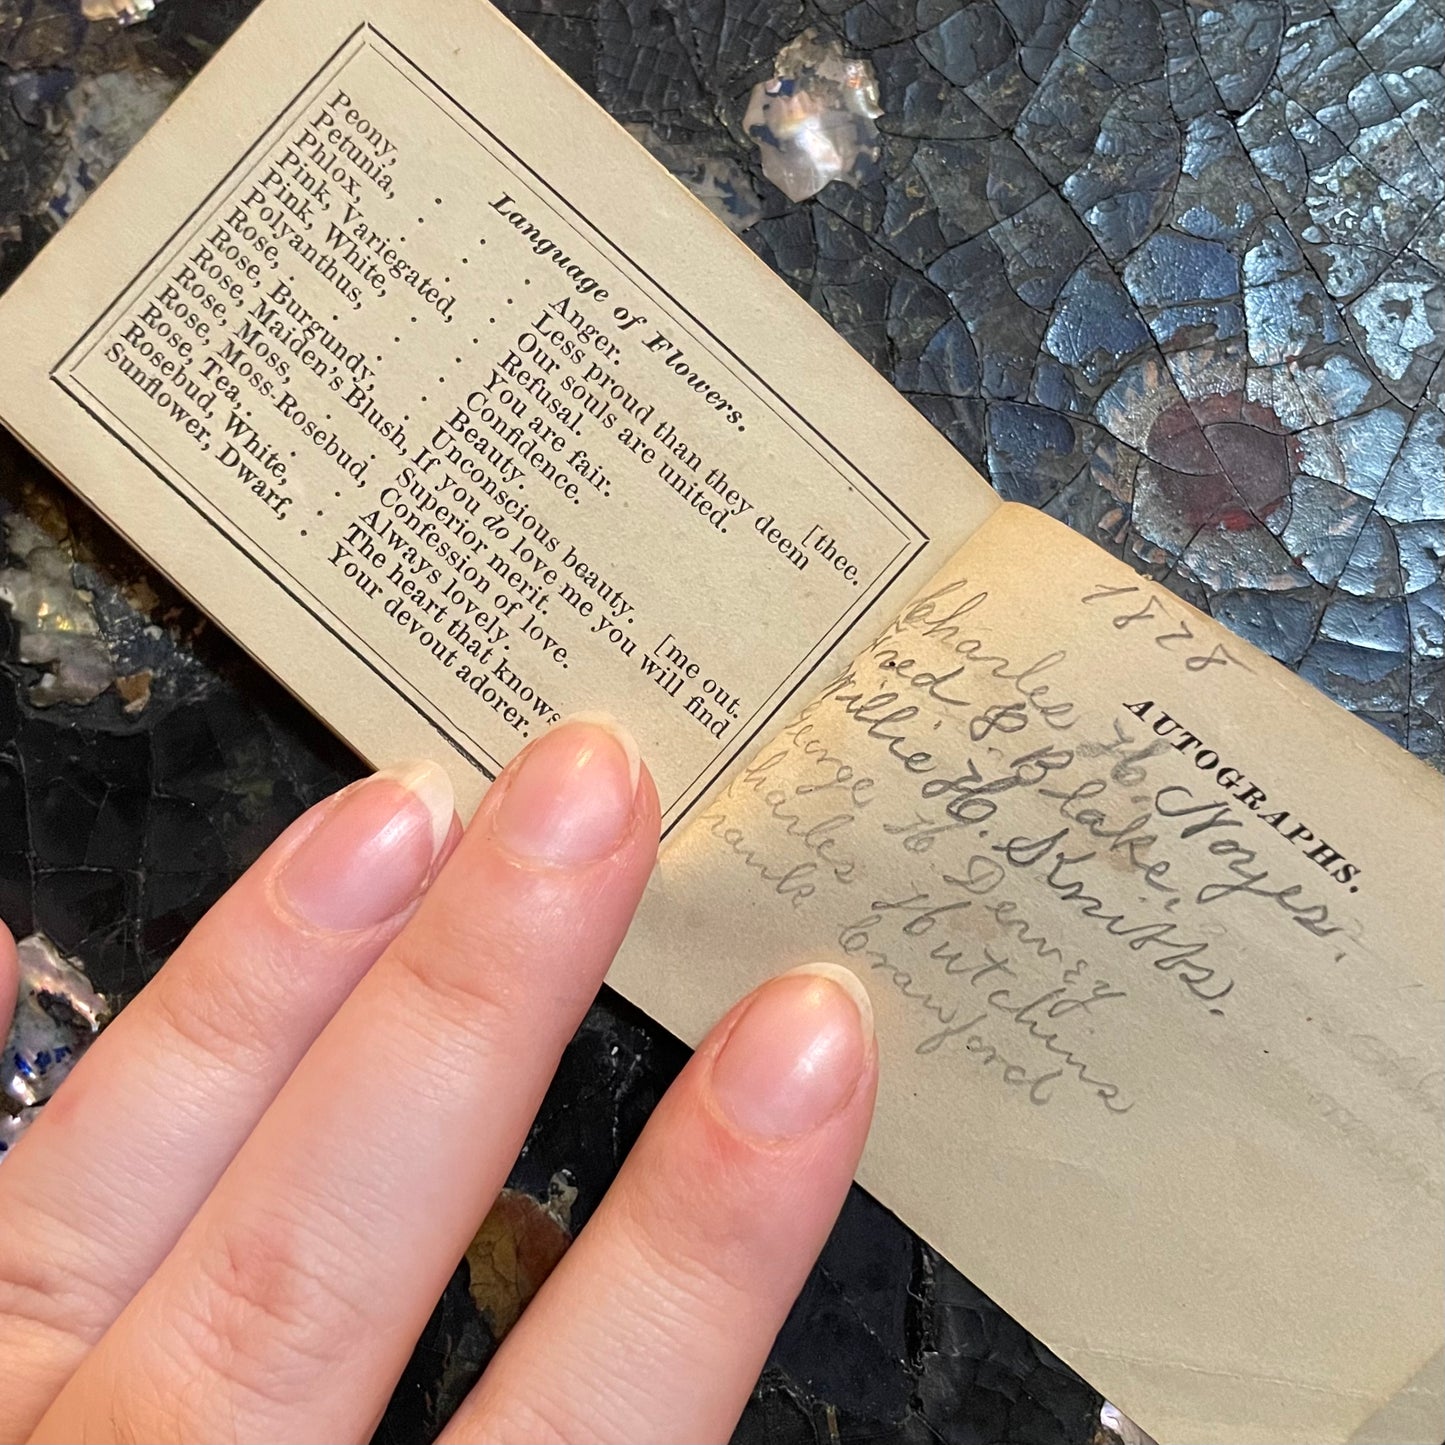 Language of Flowers.
Peony, . . . Anger. [thee.
Petunia, . . . Less proud than they deem
Phlox, . . . Our souls are united.
Pink, Variegated, . Refusal.
Pink, White, . . You are fair.
Polyanthus, . . Confidence.
Rose, . . . Beauty.
Rose, Burgundy, . Unconscious beauty. [me out.
Rose, Maiden's Blush, If you do love me you will find
Rose, Moss, . . Superior merit.
Rose, Moss-Rosebud, Confession of love.
Rose, Tea, . . Always lovely.
Rosebud, White, . The heart that knows
Sunflower, Dwarf, . Your devout adorer.
1878
AUTOGRAPHS.
Charles H. Noyes.
Fred P. Blake,
Willie H. Smitts.
George H Dervey
Charles Hutchins
Frank Crawford